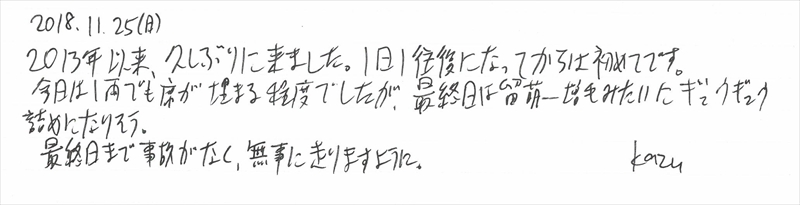 2018.11.25(日)
2013年以来、久しぶりに来ました。1日1往復になってからは初めてです。
今日は1両でも席が埋まる程度でしたが、最終日は留萌ー増毛みたいにギュウギュウ
詰めになりそう。
最終日まで事故がなく、無事に走りますように。 kazu